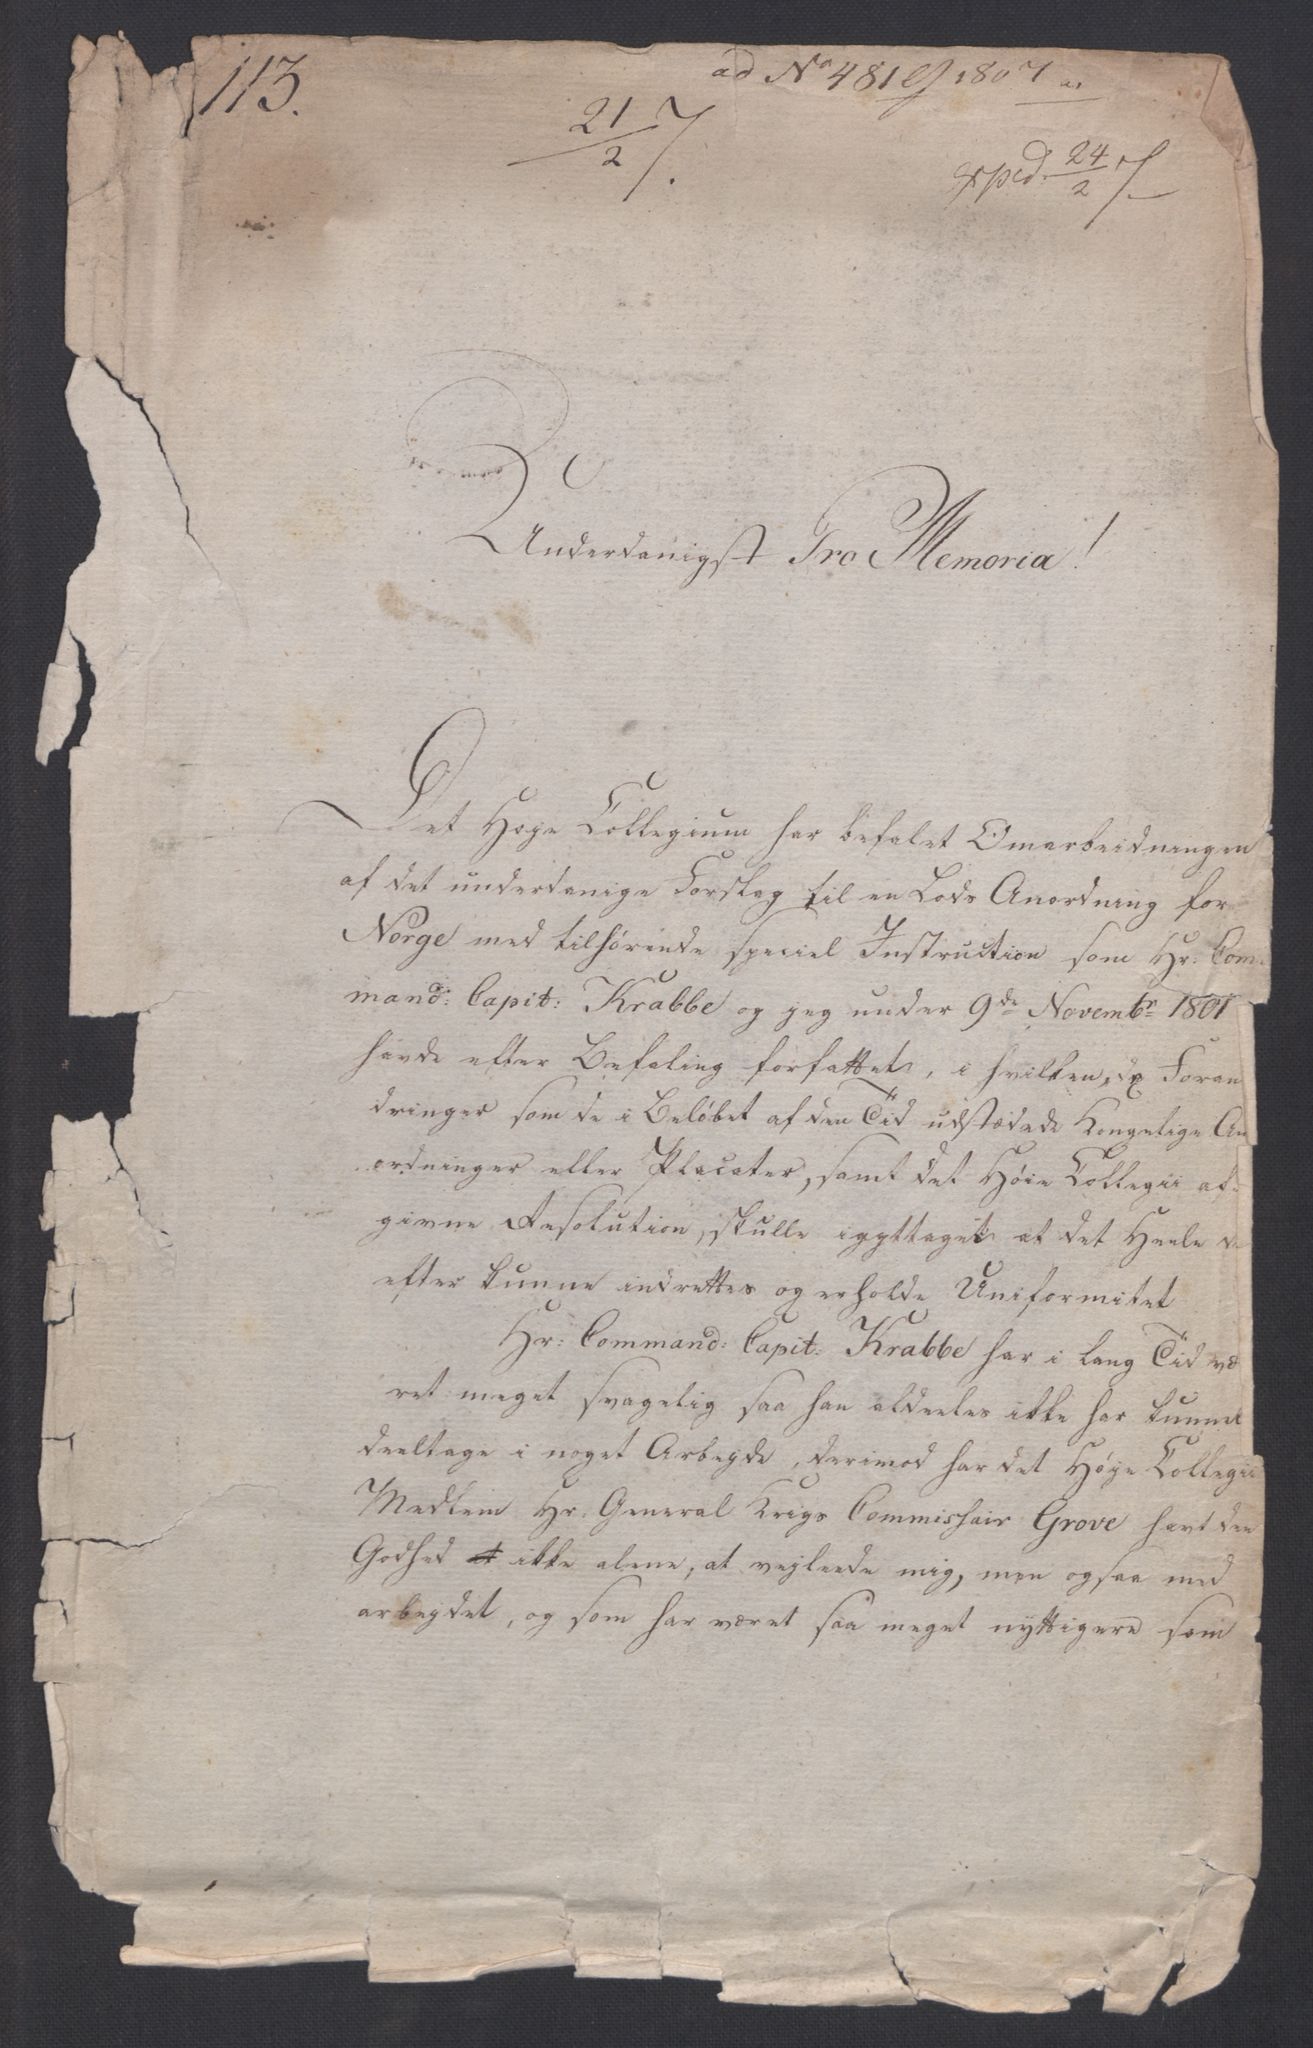 113.
ad No 481 1807
21/2 7.
exped. 24/2 7.
Underdanigst Pro Memoria!
Det Høye Collegium har befalet Omarbeidningen
af det underdanige Forslag til en Lods Anordning for
Norge med tilhørende speciel Instruction som Hr: Com-
mand: Capit: Krabbe og jeg under 9de Novembr 1801
havde efter Befaling forfattet, i hvilken de Foran
dringer som de i Beløbet af den Tid udstædede Kongelige An
ordninger eller Placater, samt det Høie Collegii af-
givne Resolution, skulle iagttages at det Heele de
efter kunne indrettes og erholde Uniformitet
Hr: Command: Capit: Krabbe har i lang Tid væ
ret meget svagelig saa han aldeeles ikke har kunnet
deeltage i noget Arbeyde, derimod har det Høye Collegii
Medlem Hr: General Krigs Commishair Grove havt den
Godhed ikke alene, at vejleede mig, men ogsaa med
arbejdet, og som har været saa meget nyttigere som